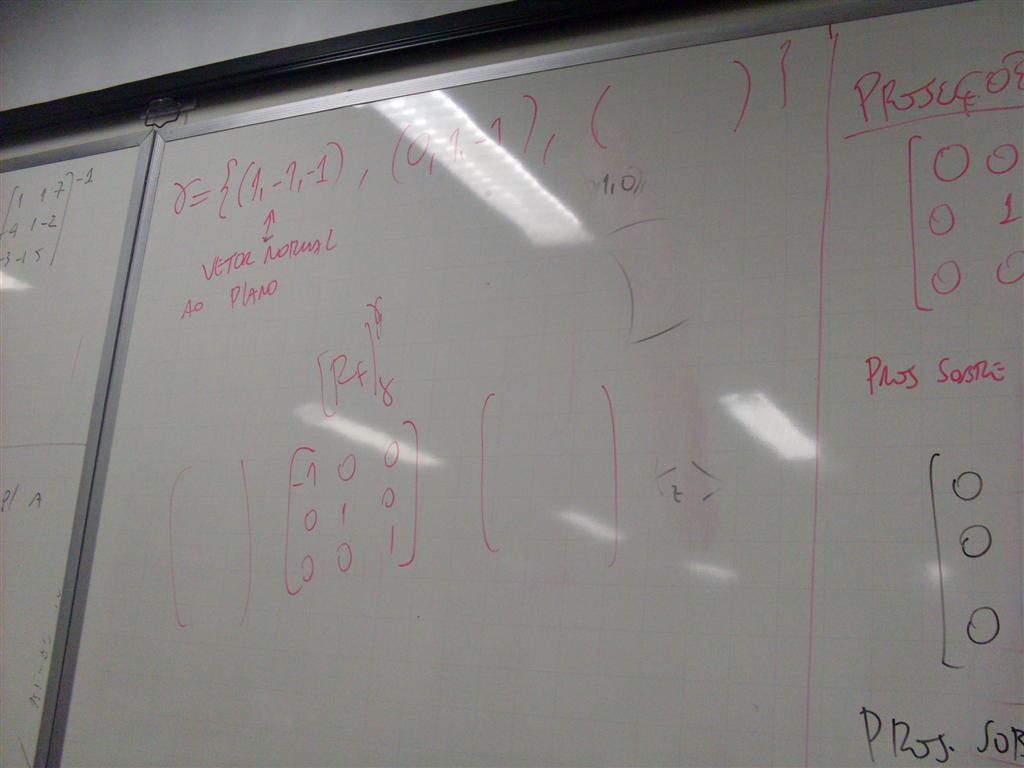 [1 1 7]⁻¹
-4 1 -2
-3 -1 5
P/ A
γ = {(1,-1,-1), (0,1,-1), ( )}
1,0)
VETOR NORMAL
AO PLANO
[Rf]
-1 0 0
0 1 0
0 0 1
z
PROJEÇÕE
0 0
0 1
0 0
PROJ SOBRE
0
0
0
PROJ. SOB